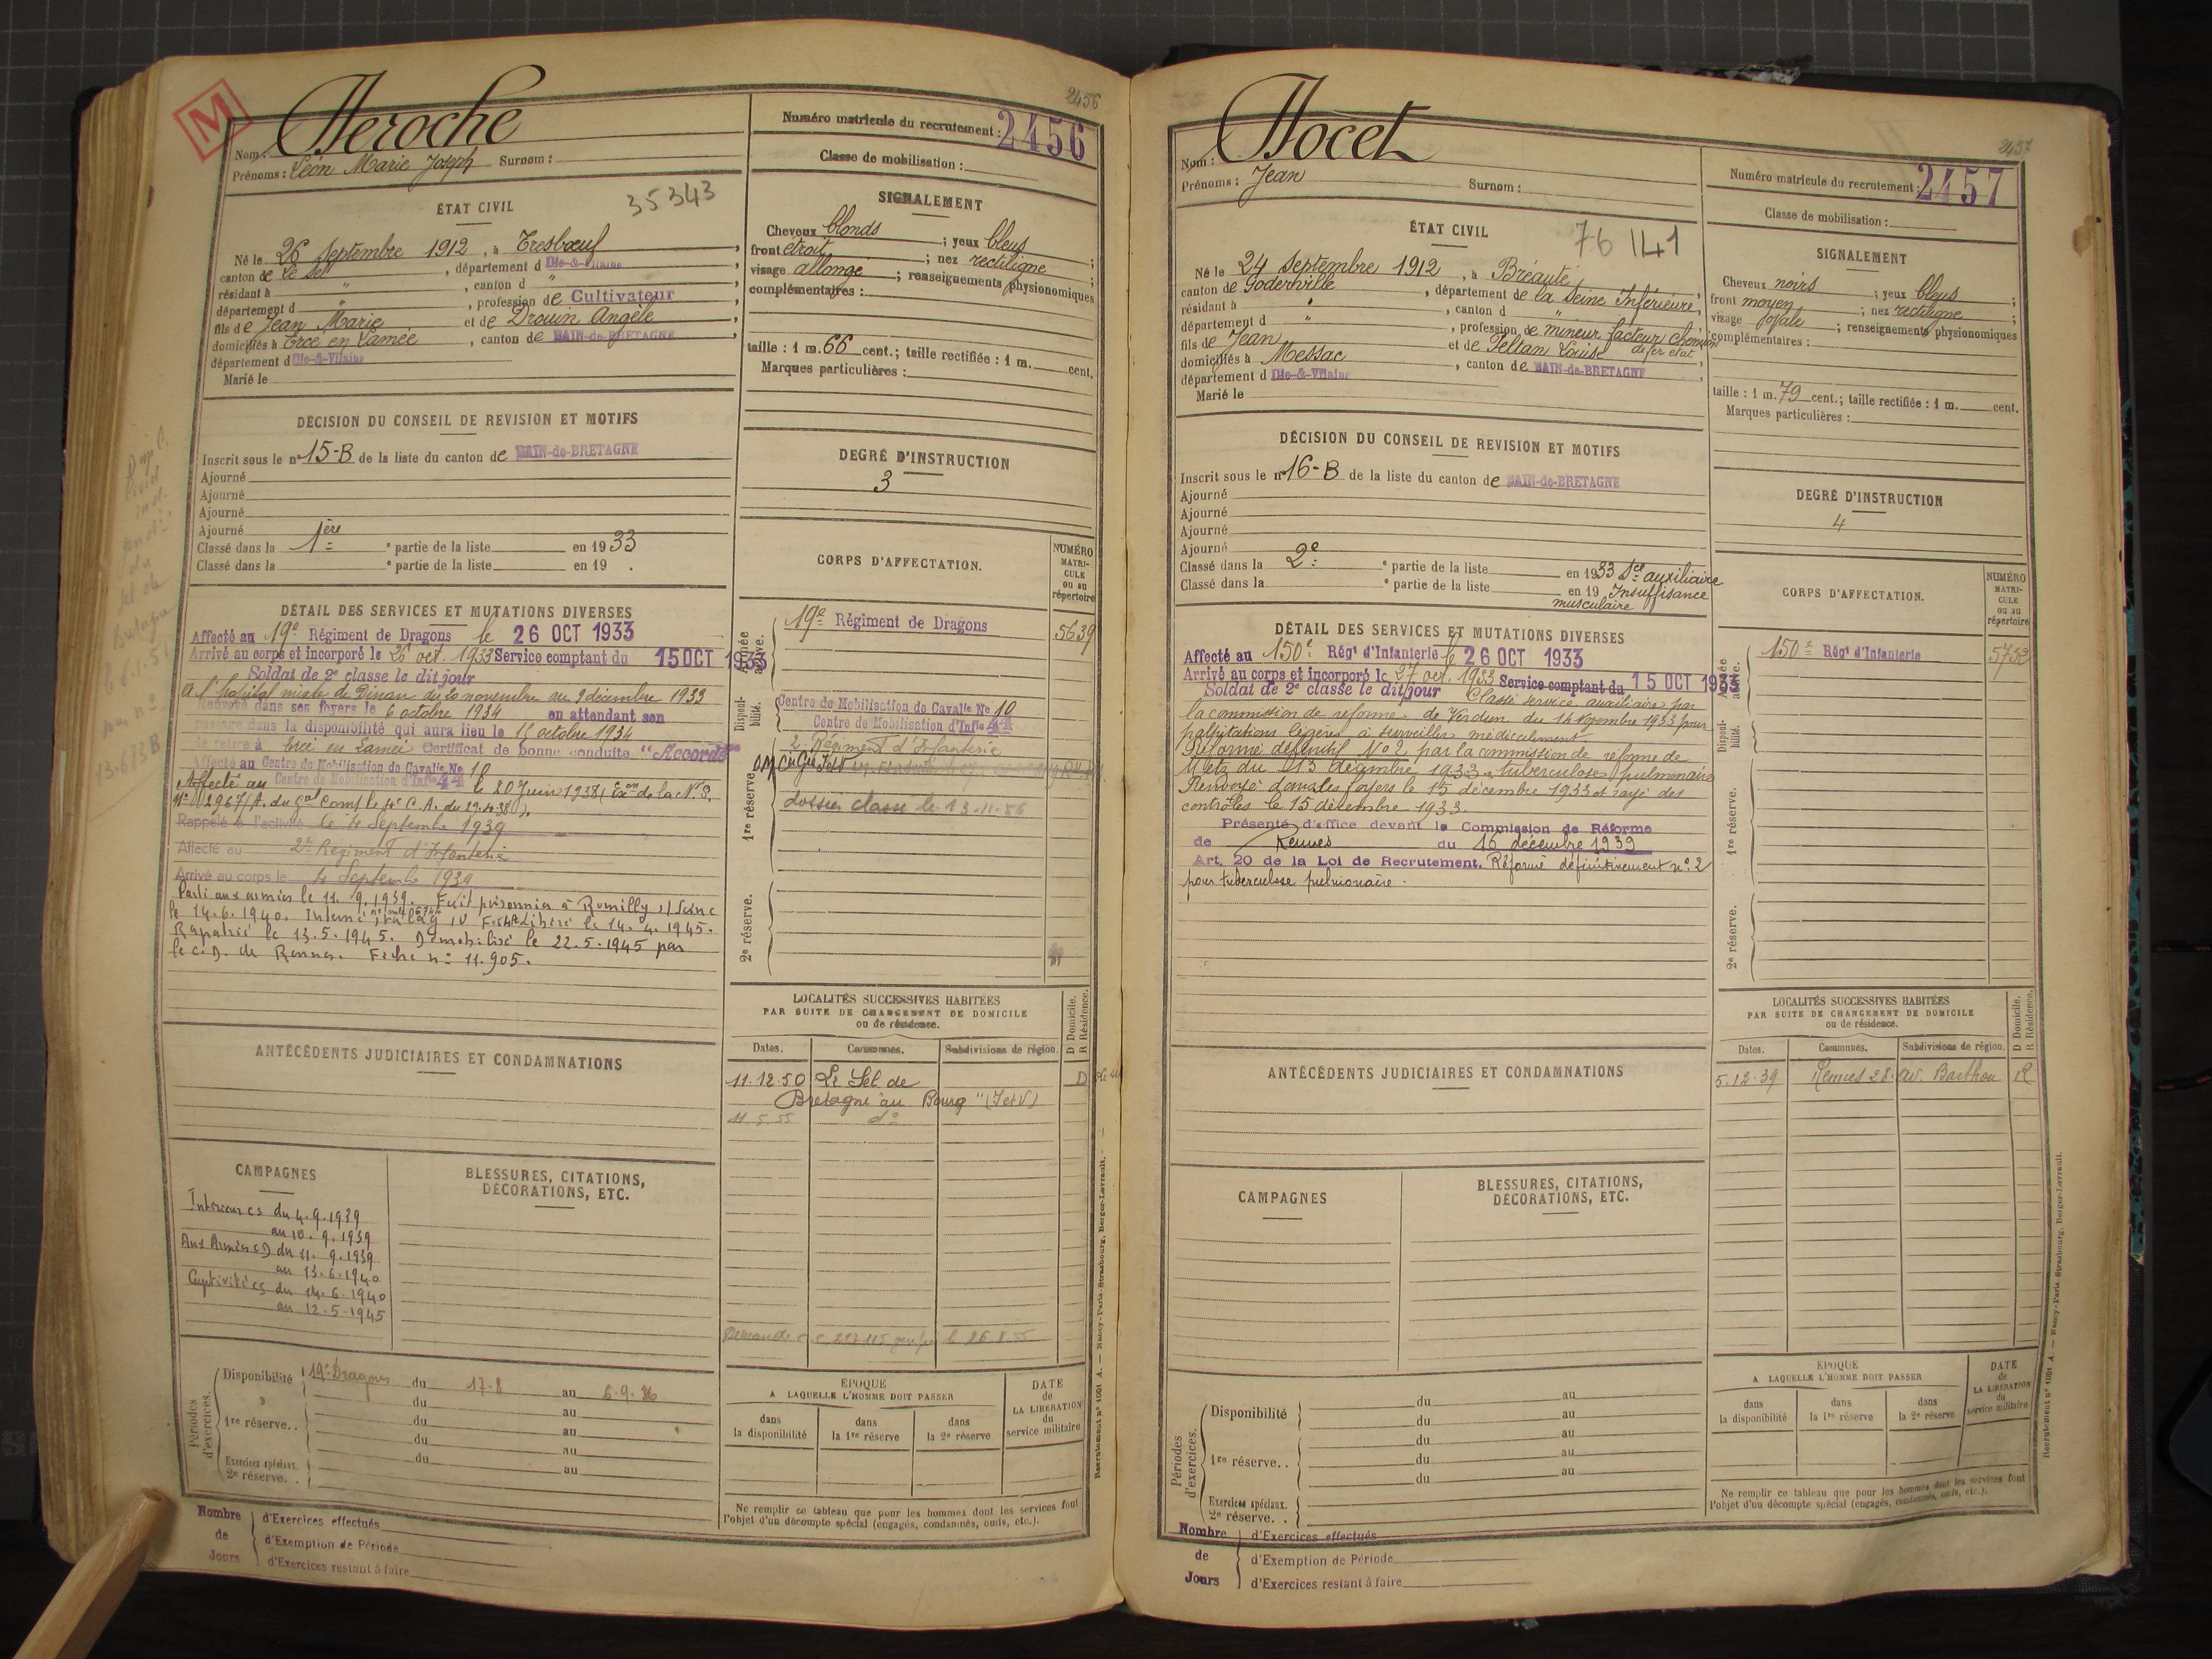 M
2456
Nom : Heroche
Prénoms : Léon Marie Joseph Surnom :
Numéro matricule du recrutement : 2456
Classe de mobilisation :
ÉTAT CIVIL
35343
Né le 26 Septembre 1912, à Tresbœuf
canton de Le Sel, département d Ille-&-Vilaine
résidant à ", canton d "
département d ", profession de Cultivateur
fils de Jean Marie et de Drouin Angèle
domiciliés à Ercé en Lamée, canton de BAIN-de-BRETAGNE
département d Ille-&-Vilaine
Marié le
SIGNALEMENT
Cheveux blonds ; yeux bleus ;
front étroit ; nez rectiligne ;
visage allongé ; renseignements physionomiques
complémentaires :
taille : 1 m. 66 cent.; taille rectifiée : 1 m. cent.
Marques particulières :
DÉCISION DU CONSEIL DE REVISION ET MOTIFS
Inscrit sous le n° 15-B de la liste du canton de BAIN-de-BRETAGNE
Ajourné
Ajourné
Ajourné
Ajourné
Classé dans la 1ère partie de la liste en 1933
Classé dans la e partie de la liste en 19 .
DEGRÉ D'INSTRUCTION
3
DÉTAIL DES SERVICES ET MUTATIONS DIVERSES
Affecté au 19e Régiment de Dragons le 26 OCT 1933
Arrivé au corps et incorporé le 26 oct. 1933 Service comptant du 15 OCT 1933
Soldat de 2e classe le dit jour
A l'hôpital mixte de Dinan du 20 novembre au 9 décembre 1933
Renvoyé dans ses foyers le 6 octobre 1934 en attendant son
passage dans la disponibilité qui aura lieu le 15 octobre 1934
Se retire à Ercé en Lamée Certificat de bonne conduite "Accordé"
Affecté au Centre de Mobilisation de Cavalie No 10
Affecté au Centre de Mobilisation d'Infie 44 le 20 Juin 1938 (Exon de la N.S.
No 2967/A. du Gal Comt le 4e C.A. du 29.4.38).
Rappelé à l'activité le 4 Septembre 1939
Affecté au 2e Régiment d'Infanterie
Arrivé au corps le 4 Septembre 1939
Parti aux armées le 11.9.1939. Fait prisonnier à Romilly s/Seine
le 14.6.1940. Interné stalag IV F. Libéré le 14.4.1945.
Rapatrié le 13.5.1945. Démobilisé le 22.5.1945 par
le C.D. de Rennes. Fiche n° 11.905.
CORPS D'AFFECTATION.
NUMÉRO MATRICULE ou au répertoire
Armée active.
19e Régiment de Dragons 5639
Disponibilité.
Centre de Mobilisation de Cavalie No 10
Centre de Mobilisation d'Infie 44
2e Régiment d'Infanterie
1re réserve.
dossier classé le 13-11-56
2e réserve.
LOCALITÉS SUCCESSIVES HABITÉES
PAR SUITE DE CHANGEMENT DE DOMICILE
ou de résidence.
D Domicile.
R Résidence.
Dates. Communes. Subdivisions de région.
11.12.50 Le Sel de D
Bretagne "au Bourg" (I et V)
11.5.55 d°
ANTÉCÉDENTS JUDICIAIRES ET CONDAMNATIONS
CAMPAGNES
Intérieur CS du 4.9.1939
au 10.9.1939
Aux Armées CD du 11.9.1939
au 13.6.1940
Captivité CS du 14.6.1940
au 12.5.1945
BLESSURES, CITATIONS,
DÉCORATIONS, ETC.
Périodes d'exercices.
Disponibilité 19e Dragons du 17.8 au 6.9.36
du au
1re réserve.. du au
du au
Exercices spéciaux. du au
2e réserve. .
ÉPOQUE
A LAQUELLE L'HOMME DOIT PASSER
dans la disponibilité
dans la 1re réserve
dans la 2e réserve
DATE de LA LIBÉRATION du service militaire
Ne remplir ce tableau que pour les hommes dont les services font
l'objet d'un décompte spécial (engagés, condamnés, omis, etc.).
Nombre de Jours
d'Exercices effectués
d'Exemption de Période
d'Exercices restant à faire
Recrutement n° 1001 A. — Nancy-Paris-Strasbourg, Berger-Levrault.
2457
Nom : Hocet
Prénoms : Jean Surnom :
Numéro matricule du recrutement : 2457
Classe de mobilisation :
ÉTAT CIVIL
76 141
Né le 24 Septembre 1912, à Bréauté,
canton de Goderville, département de la Seine Inférieure,
résidant à ", canton d "
département d ", profession de mineur facteur chemin
de fer état
fils de Jean et de Teltan Louise
domiciliés à Messac, canton de BAIN-de-BRETAGNE
département d Ille-&-Vilaine
Marié le
SIGNALEMENT
Cheveux noirs ; yeux bleus ;
front moyen ; nez rectiligne ;
visage ovale ; renseignements physionomiques
complémentaires :
taille : 1 m. 79 cent.; taille rectifiée : 1 m. cent.
Marques particulières :
DÉCISION DU CONSEIL DE REVISION ET MOTIFS
Inscrit sous le n° 16-B de la liste du canton de BAIN-de-BRETAGNE
Ajourné
Ajourné
Ajourné
Ajourné
Classé dans la 2e partie de la liste en 1933 Sce auxiliaire
Classé dans la e partie de la liste en 19 Insuffisance
musculaire
DEGRÉ D'INSTRUCTION
4
DÉTAIL DES SERVICES ET MUTATIONS DIVERSES
Affecté au 150e Régt d'Infanterie le 26 OCT 1933
Arrivé au corps et incorporé le 27 oct. 1933 Service comptant du 15 OCT 1933
Soldat de 2e classe le dit jour Classé service auxiliaire par
la commission de réforme de Verdun du 16 novembre 1933 pour
palpitations légères à surveiller médicalement
Réformé définitif No 2 par la commission de réforme de
Metz du 13 décembre 1933 tuberculose pulmonaire
Renvoyé dans ses foyers le 15 décembre 1933 et rayé des
contrôles le 15 décembre 1933.
Présenté d'office devant la Commission de Réforme
de Rennes du 16 décembre 1939
Art. 20 de la Loi de Recrutement. Réformé définitivement n° 2
pour tuberculose pulmonaire.
CORPS D'AFFECTATION.
NUMÉRO MATRICULE ou au répertoire
Armée active.
150e Régt d'Infanterie 5732
Disponibilité.
1re réserve.
2e réserve.
LOCALITÉS SUCCESSIVES HABITÉES
PAR SUITE DE CHANGEMENT DE DOMICILE
ou de résidence.
D Domicile.
R Résidence.
Dates. Communes. Subdivisions de région.
5.12.39 Rennes 28. av. Barthou R
ANTÉCÉDENTS JUDICIAIRES ET CONDAMNATIONS
CAMPAGNES
BLESSURES, CITATIONS,
DÉCORATIONS, ETC.
Périodes d'exercices.
Disponibilité du au
du au
1re réserve.. du au
du au
du au
Exercices spéciaux.
2e réserve. .
ÉPOQUE
A LAQUELLE L'HOMME DOIT PASSER
dans la disponibilité
dans la 1re réserve
dans la 2e réserve
DATE de LA LIBÉRATION du service militaire
Ne remplir ce tableau que pour les hommes dont les services font
l'objet d'un décompte spécial (engagés, condamnés, omis, etc.).
Nombre de Jours
d'Exercices effectués
d'Exemption de Période
d'Exercices restant à faire
Recrutement n° 1001 A. — Nancy-Paris-Strasbourg, Berger-Levrault.